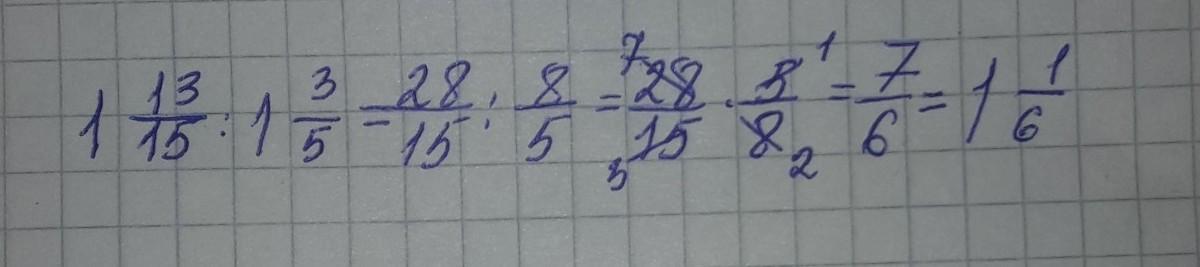 1 13/15 : 1 3/5 = 28/15 : 8/5 = 28/15 · 5/8 = 7/6 = 1 1/6